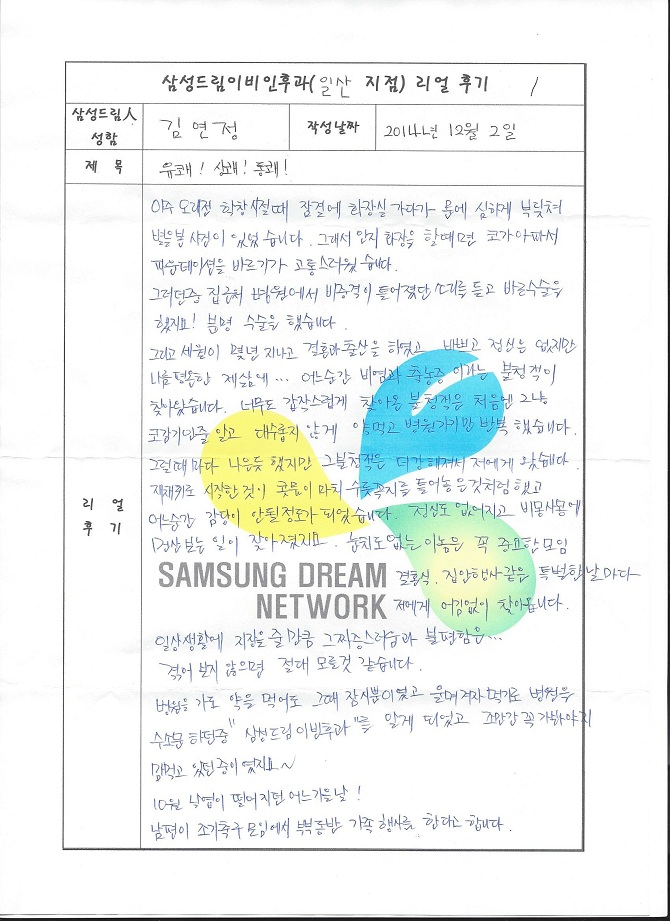 삼성드림이비인후과(일산 지점) 리얼 후기 1
삼성드림人
성함
김연정
작성날짜
2014년 12월 2일
제 목
유쾌! 상쾌! 통쾌!
리 얼
후 기
아주 오래전 학창시절때 잠결에 화장실 가다가 문에 심하게 부딪쳐
별을볼 사건이 있었습니다. 그래서 인지 화장을 할때면 코가아파서
파운데이션을 바르기가 고통스러웠습니다.
그러던중 집근처 병원에서 비중격이 틀어졌단 소리를 듣고 바로수술을
했지요! 분명 수술을 했습니다.
그리고 세월이 몇년 지나고 결혼과 출산을 하였고 바쁘고 정신은 없지만
나름평온한 제삶에... 어느순간 비염과 축농증 이라는 불청객이
찾아왔습니다. 너무도 갑작스럽게 찾아온 불청객은 처음엔 그냥
코감기인줄 알고 대수롭지 않게 약먹고 병원가기만 반복 했습니다.
그럴때 마다 나은듯 했지만 그불청객은 더강해져서 저에게 왔습니다.
재채기로 시작한것이 콧물이 마치 수돗꼭지를 틀어놓은것처럼 했고
어느순간 감당이 안될정도가 되었습니다. 정신도 없어지고 비몽사몽에
일상 보는 일이 잦아졌지요. 눈치도 없는 이놈은 꼭 중요한 모임
결혼식, 집안행사같은 특별한 날마다
SAMSUNG DREAM
NETWORK
저에게 어김없이 찾아옵니다.
일상생활에 지장을 줄 만큼 그짜증스러움과 불편함은...
겪어 보지 않으면 절대 모를것 같습니다.
병원을 가도 약을 먹어도 그때 잠시뿐이였고 울며겨자 먹기로 병원을
수소문 하던중 "삼성드림 이빈후과"를 알게 되었고 조만간 꼭 가봐야지
맘먹고 있던 중이였지요~
10월 낙엽이 떨어지던 어느가을날!
남편이 조기축구 모임에서 부부동반 가족 행사를 한다고 합니다.